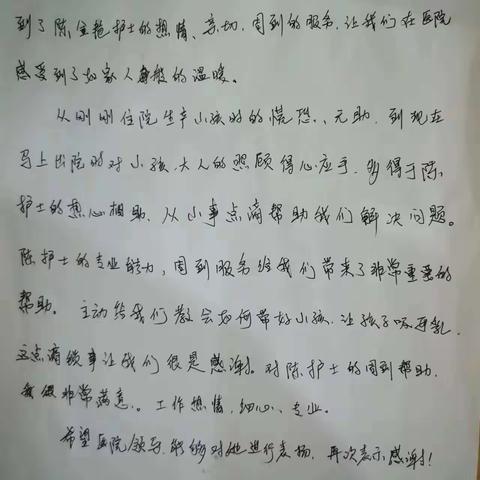 到了陈金艳护士的热情、亲切、周到的服务，让我们在医院
感受到了如家人般的温暖。
从刚刚住院生产小孩时的慌恐、无助，到现在
马上出院时对小孩、大人的照顾得心应手，多得于陈
护士的热心相助，从小事点滴帮助我们解决问题。
陈护士的专业能力，周到服务给我们带来了非常重要的
帮助。主动给我们教会如何带好小孩，让孩子吸母乳，
这点滴琐事让我们很是感谢。对陈护士的周到帮助，
我很非常满意。工作热情、细心、专业。
希望医院领导，能够对她进行表扬，再次表示感谢！